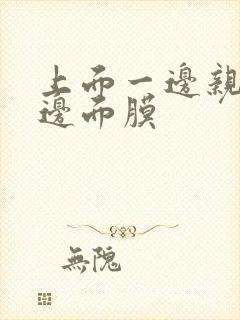 上而一邊親
邊而膜
無隗